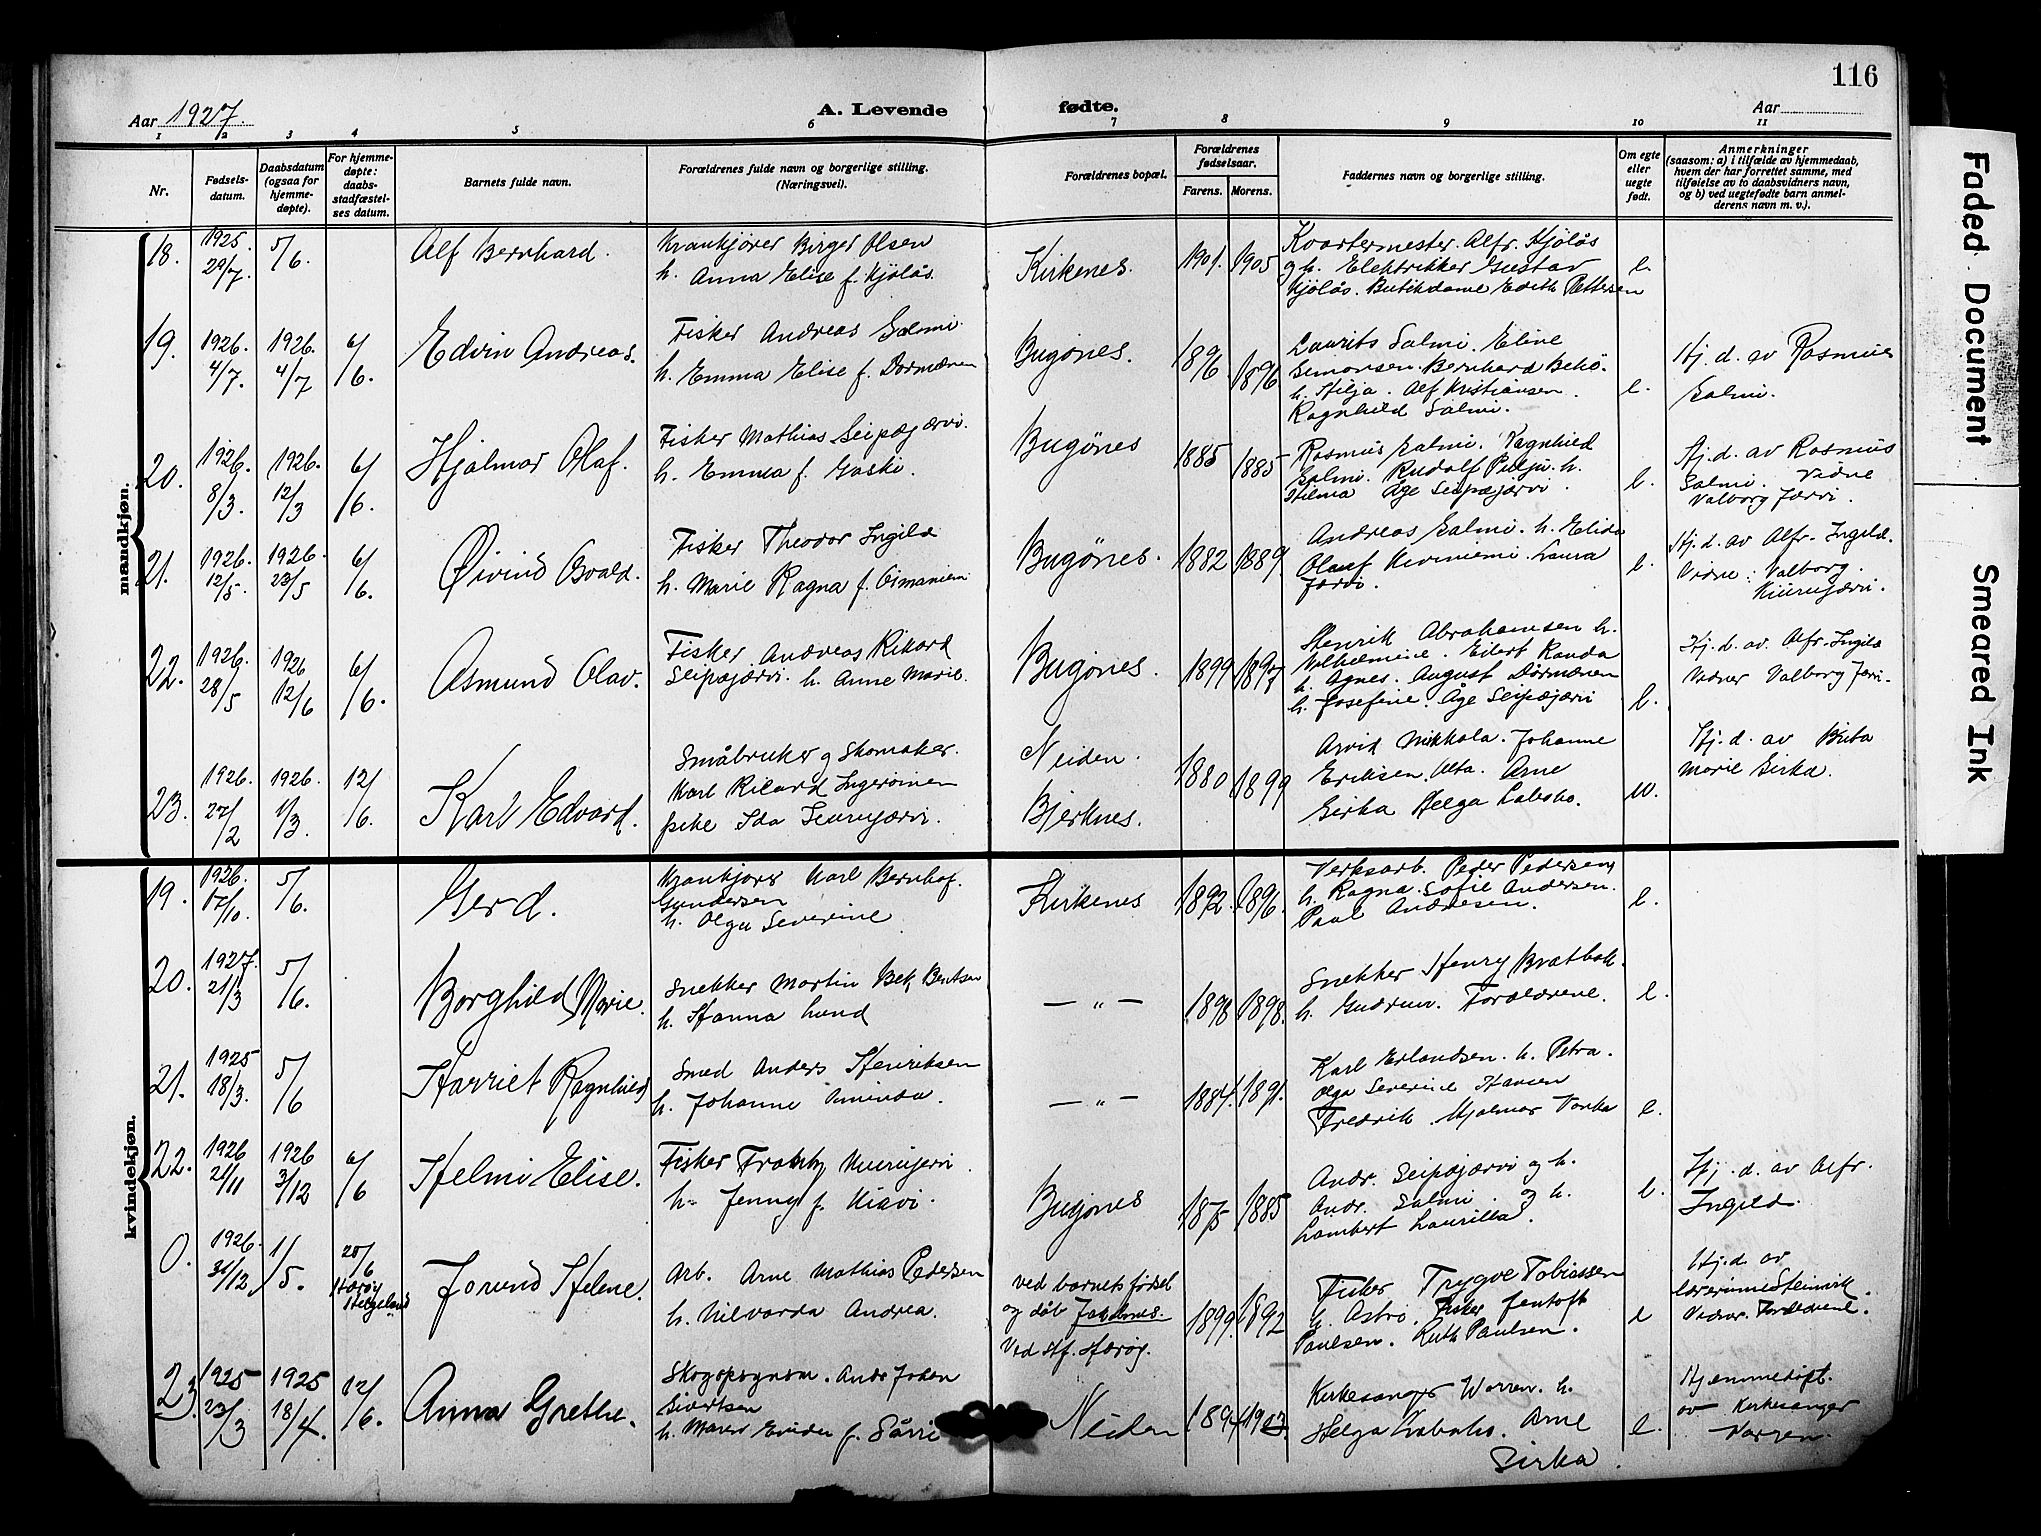 116
Aar 1927.
A. Levende fødte.
Aar
1 2 3 4 5 6 7 8 9 10 11
Nr.
Fødsels-
datum.
Daabsdatum
(ogsaa for
hjemme-
døpte).
For hjemme-
døpte:
daabs-
stadfæstel-
ses datum.
Barnets fulde navn.
Forældrenes fulde navn og borgerlige stilling.
(Næringsvei).
Forældrenes bopæl.
Forældrenes
fødselsaar.
Farens. Morens.
Faddernes navn og borgerlige stilling.
Om egte
eller
uegte
født.
Anmerkninger
(saasom: a) i tilfælde av hjemmedaab,
hvem der har forrettet samme, med
tilføielse av to daabsvidners navn,
og b) ved uegtefødte barn anmel-
derens navn m. v.).
mandkjøn.
18.
1925.
29/7.
5/6.
Alf Bernhard.
Krankjører Birger Olsen
h. Anna Elise f. Kjølås.
Kirkenes.
1901. 1905
Kvartermester. Alfr. Kjølås
og h. Elektrikker Gustav
Kjølås. Butikdame Edith Pettersen
e.
19.
1926.
4/7.
1926.
4/7
6/6.
Edvin Andreas.
Fisker Andreas Salmi.
h. Emma Elise f. Dørmænen
Bugønes.
1896. 1896
Laurits Salmi. Eline
Simonsen. Bernhard Behö.
h. Hilja. Alf Kristiansen.
Ragnhild Salmi.
e.
Hj. d. av Rasmus
Salmi.
20.
1926.
8/3.
1926.
12/3
6/6.
Hjalmar Olaf.
Fisker Mathias Seipæjærvi.
h. Emma f. Gaski.
Bugönes
1885 1885
Rasmus Salmi. Ragnhild
Salmi. Rudolf h.
Hilma Åge Seipæjærvi.
e.
Hj. d. av Rasmus
Salmi. Vidne
Valborg Jærvi.
21.
1926.
12/5
1926.
23/5
6/6.
Øivind Osvald.
Fisker Theodor Ingilæ
h. Marie Ragna f.
Bugönes.
1882 1889.
Andreas Salmi. h. Elida
Olauf Kiviniemi. Laura
Jærvi.
e.
Hj. d. av Alfr. Ingilæ.
Vidne: Valborg
Kiurujærvi.
22.
1926.
28/5
1926
12/6
6/6.
Asmund Olav.
Fisker Andreas Rikard
Seipæjærvi. h. Anne Marie.
Bugönes.
1899 1897
Henrik Abrahamsen h.
Vilhelmine. Eilert Randa
h. Agnes. August Dørmænen
h. Josefine. Åge Seipæjærvi
e.
Hj. d. av. Alfr. Ingilæ
Vidner Valborg Jærvi.
23.
1926.
27/2
1926.
1/3.
12/6.
Karl Edvard.
Småbruker og Skomaker.
Karl Rikard Ingeroinen
pike Ida
Neiden.
Bjerknes.
1880 1899
Arvid Nikkola. Johanne
Eriksen. Alta. Arne
Sirka Helga Labahå.
u.
Hj. d. av Brita
Marie Sirka.
kvindekjøn.
19.
1926.
/10.
5/6.
Gerd.
Krankjører Karl Bernhof.
Gundersen
h. Olga Severine
Kirkenes
1892. 1896.
Verksarb. Peder Pedersen,
h. Ragna. Sofie Andersen.
Paul Andresen.
e.
20.
1927.
21/3
5/6.
Borghild Marie.
Snekker Martin Bek, Bentsen
h. Hanna Lund
— „ —
1898 1898.
Snekker Henry Bratbak.
h. Gudrun. Forældrene.
e.
21.
1925
18/3.
5/6
Harriet Ragnhild
Smed Anders Henriksen
h. Johanne Aminda.
— „ —
1884. 1891.
Karl Erlandsen. h. Petra.
Olga Severine Hansen
Fredrik Hjalmar
e.
22.
1926
21/11
1926
3/12
6/6
Helmi Elise.
Fisker Kiurujervi.
h. Jenny f. Kiævi.
Bugönes
1875 1885
Andr. Seipæjærvi og h.
Andr. Salmi og h.
Lambert Laurilla.
e.
Hj. d. av Alfr.
Ingilæ.
0.
1926.
31/12
1/5.
20/6
Herøy
Helgeland
Jorund Helene.
Arb. Arne Mathias Pedersen
h. Nilvarda Andrea.
ved barnets fødsel
og dåb Jakobsnes.
Ved stf. Herøy.
1899. 1892
Fisker Trygve Tobiassen
h. Astrid. Fisker Jentoft
Paulsen. Ruth Paulsen.
e
Hj. d. av
lærerinne Steinvik.
Vidner. Forældrene.
23.
1925
23/3
1925
18/4.
12/6.
Anna Grethe.
Skogopsynsm. Anders Johan
Sivertsen
h. f. Sårri
Neiden
1894 1903.
Kirkesanger Warren. h.
Helga Labahå. Arne
Sirka.
e.
Hjemmedøpt.
av Kirkesanger
Warren.
Faded Document
Smeared Ink